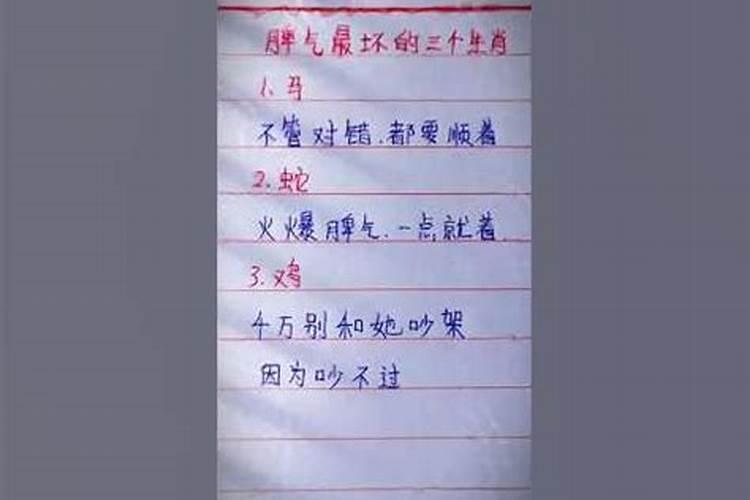 脾气最坏的三个生肖
1、马
不管对错.都要顺着
2.蛇
火爆脾气.一点就着.
3.鸡
千万别和她吵架
因为吵不过